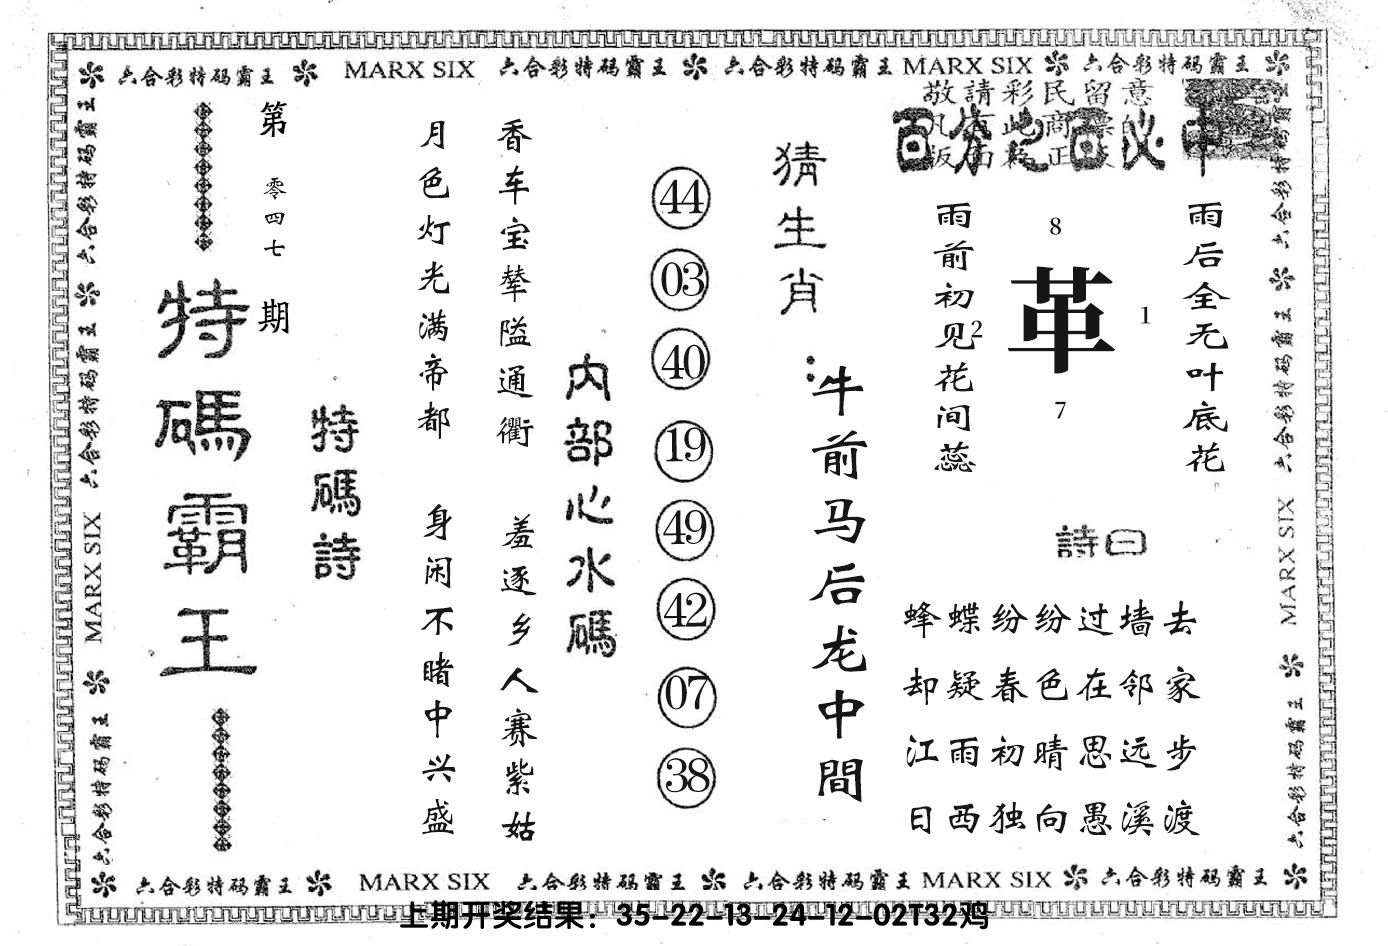 六合彩特码霸王 MARX SIX 六合彩特码霸王 六合彩特码霸王 MARX SIX 六合彩特码霸王
敬請彩民留意
百分之百必中
雨后全无叶底花
8
革
1
2
7
雨前初见花间蕊
詩曰
蜂蝶纷纷过墙去
却疑春色在邻家
江雨初晴思远步
日西独向愚溪渡
猜生肖：
牛前马后龙中間
44
03
40
19
49
42
07
38
内部心水碼
香车宝辇隘通衢 羞逐乡人赛紫姑
月色灯光满帝都 身闲不睹中兴盛
特碼詩
第零四七期
特碼霸王
六合彩特码霸王 六合彩特码霸王 六合彩特码霸王 MARX SIX 六合彩特码霸王
六合彩特码霸王 六合彩特码霸王 MARX SIX 六合彩特码霸王
六合彩特码霸王 MARX SIX 六合彩特码霸王 六合彩特码霸王 MARX SIX 六合彩特码霸王
上期开奖结果：35-22-13-24-12-02T32鸡